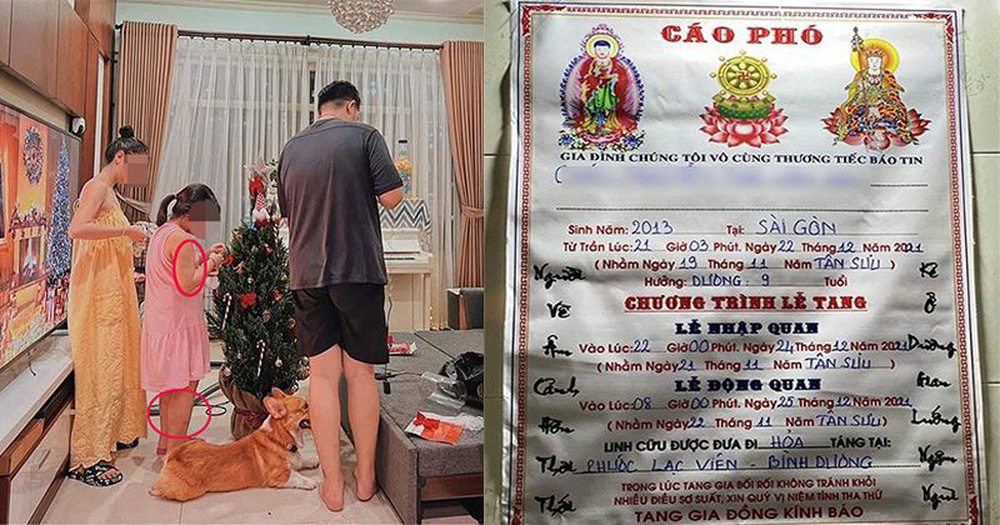 CÁO PHÓ
GIA ĐÌNH CHÚNG TÔI VÔ CÙNG THƯƠNG TIẾC BÁO TIN
Sinh Năm: 2013 Tại: SÀI GÒN
Từ Trần Lúc: 21 Giờ 03 Phút. Ngày 22 Tháng 12 Năm 2021
( Nhằm Ngày 19 Tháng 11 Năm TÂN SỬU )
Hưởng: DƯƠNG : 9 Tuổi
CHƯƠNG TRÌNH LỄ TANG
LỄ NHẬP QUAN
Vào Lúc: 22 Giờ 00 Phút. Ngày 24 Tháng 12 Năm 2021
( Nhằm Ngày 21 Tháng 11 Năm TÂN SỬU )
LỄ ĐỘNG QUAN
Vào Lúc: 08 Giờ 00 Phút. Ngày 25 Tháng 12 Năm 2021
( Nhằm Ngày 22 Tháng 11 Năm TÂN SỬU )
LINH CỮU ĐƯỢC ĐƯA ĐI HỎA TÁNG TẠI:
PHƯỚC LẠC VIÊN - BÌNH DƯƠNG
TRONG LÚC TANG GIA BỐI RỐI KHÔNG TRÁNH KHỎI
NHIỀU ĐIỀU SƠ SUẤT, XIN QUÝ VỊ NIỆM TÌNH THA THỨ
TANG GIA ĐỒNG KÍNH BÁO
Người
Về
Âm
Cảnh
Hồn
Thơ
Thới
Kẻ
Ở
Dương
Gian
Lưỡng
Ngậm
Ngùi